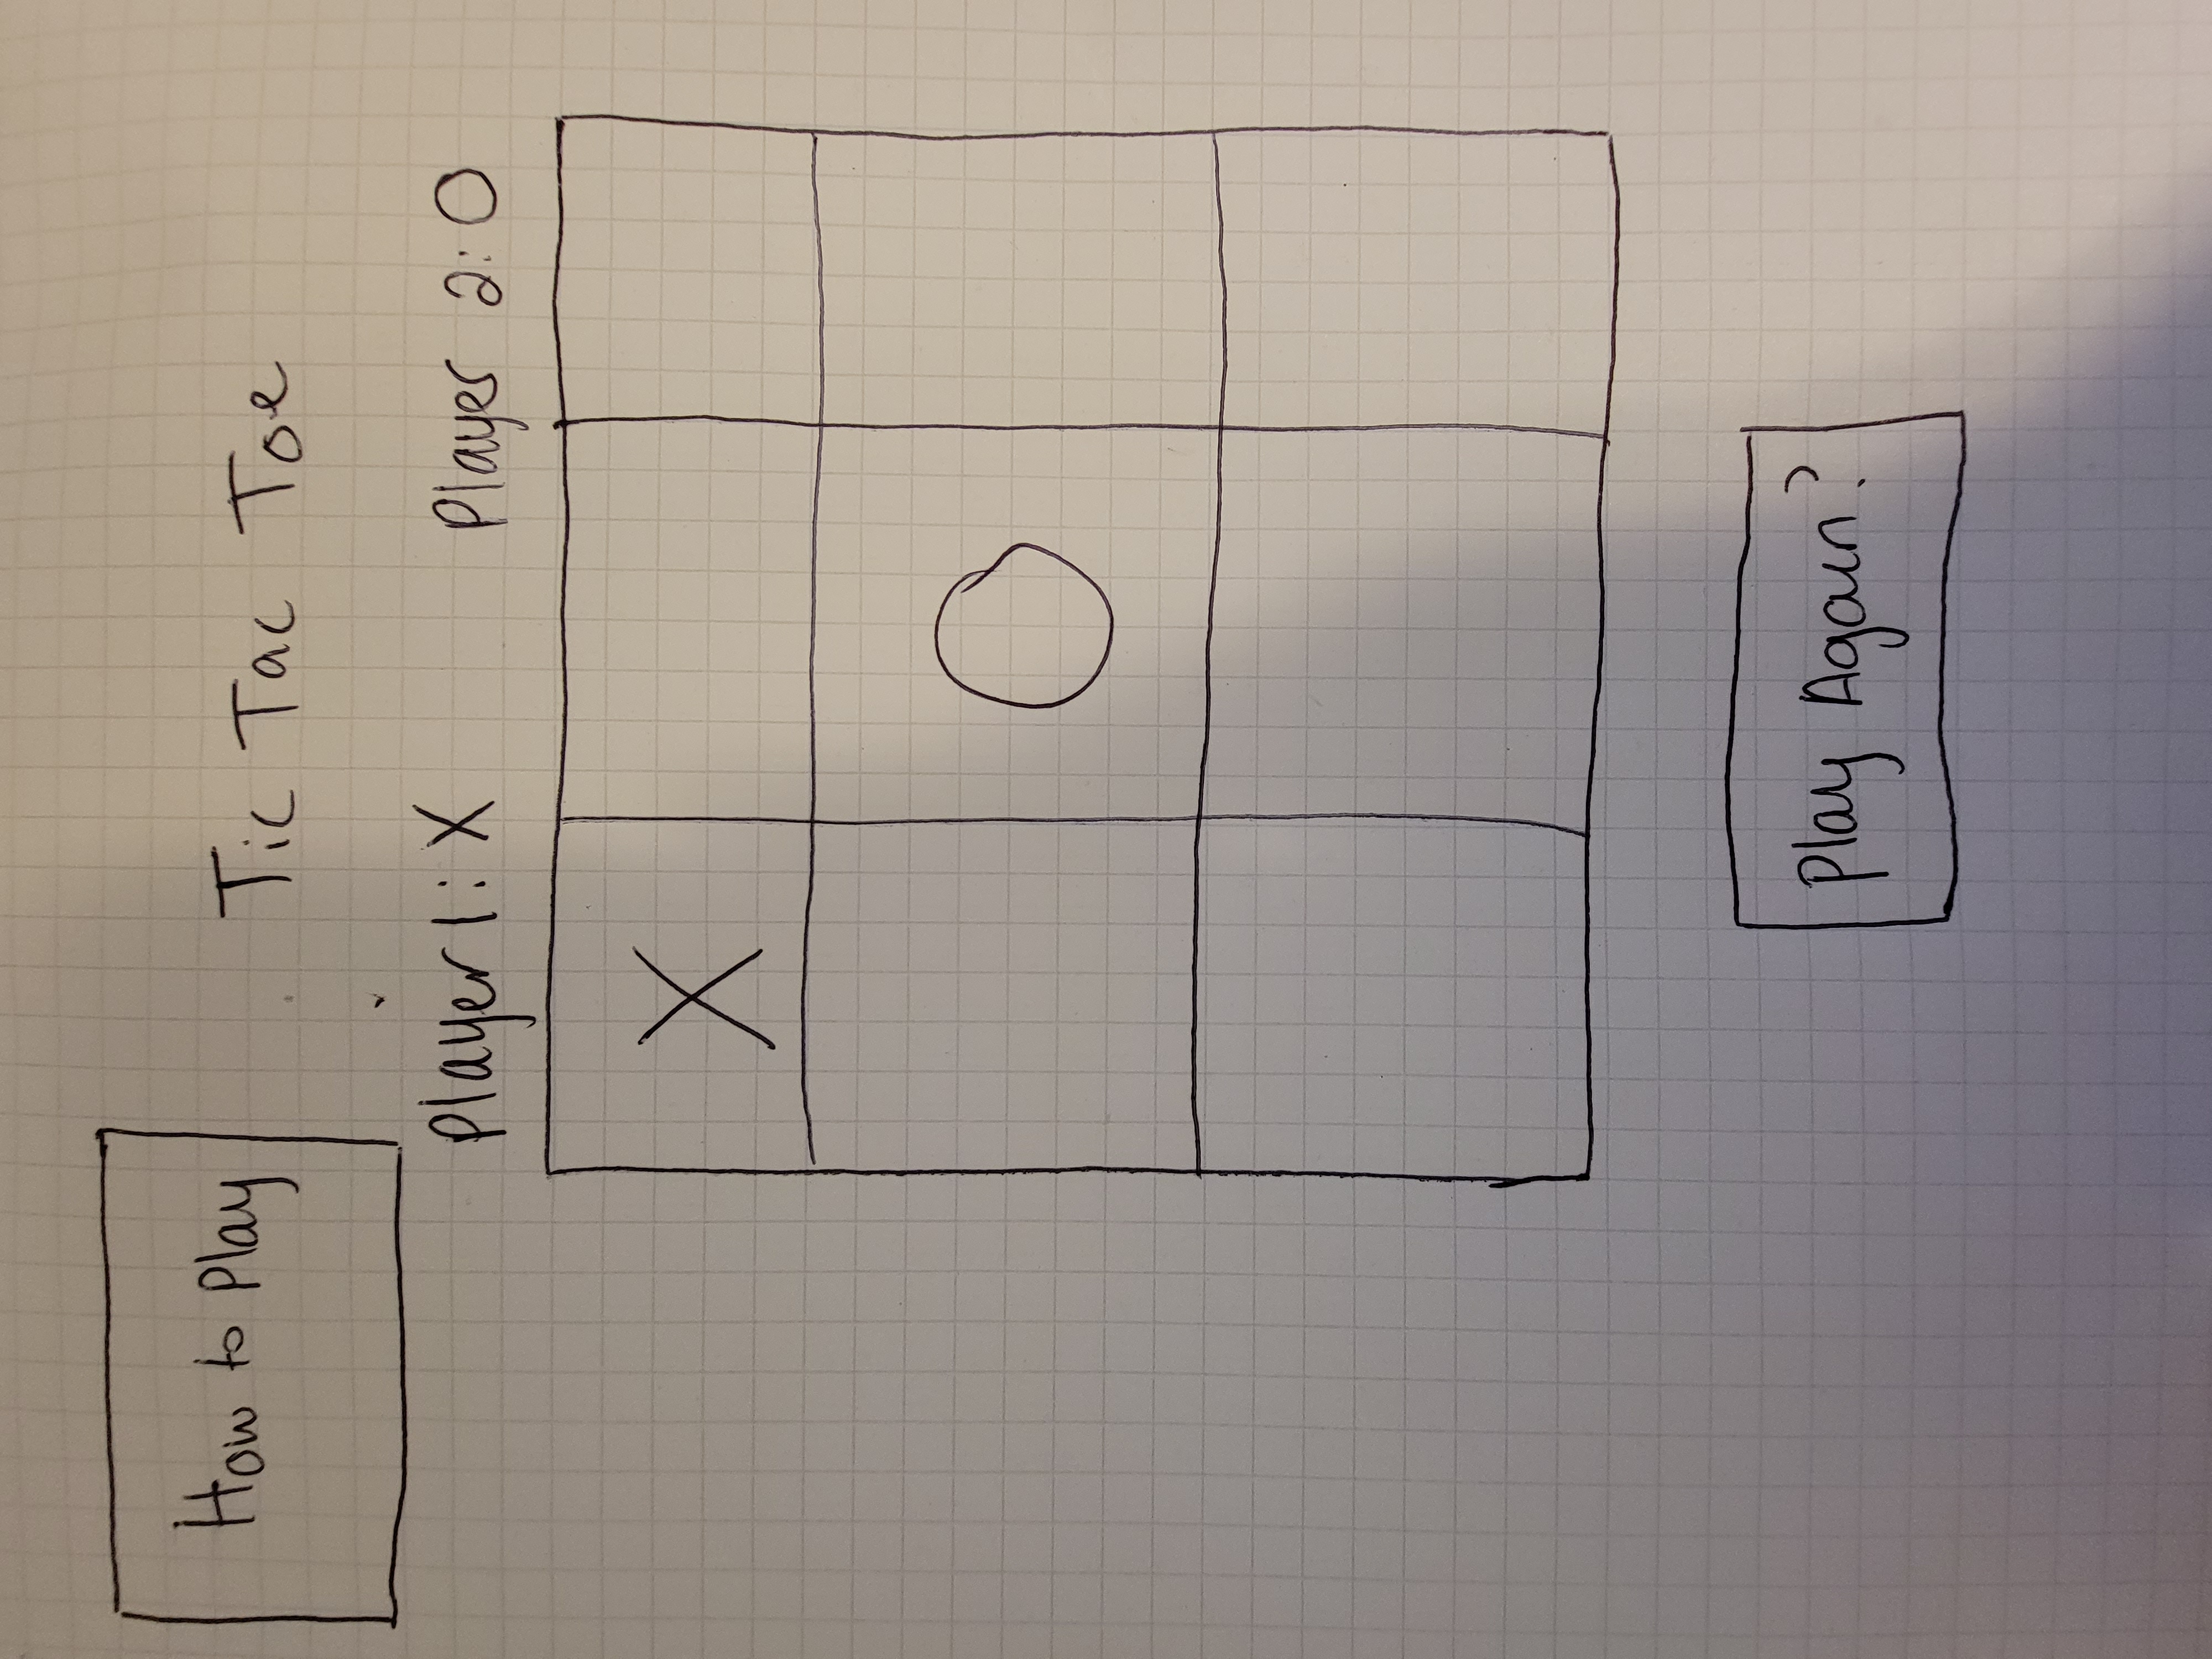 How to Play
Tic Tac Toe
Player 1: X
Player 2: O
X
O
Play Again?